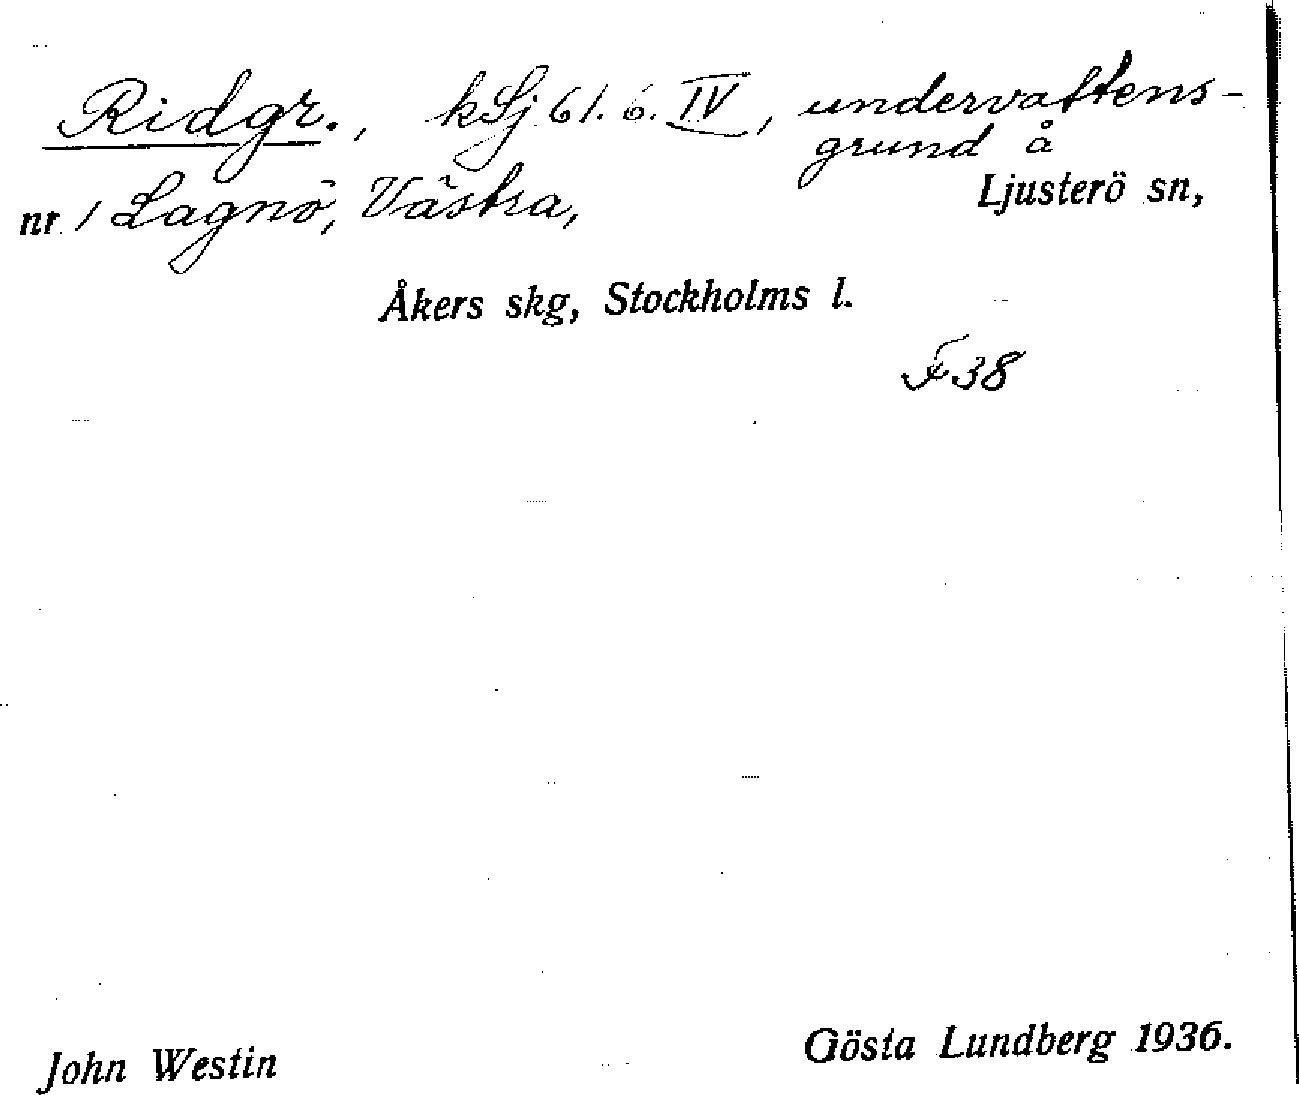 Ridgr., kLj 61. 6. IV, undervattens-
grund å
nr 1 Lagnö, Västra, Ljusterö sn,
Åkers skg, Stockholms l.
F 38
John Westin Gösta Lundberg 1936.